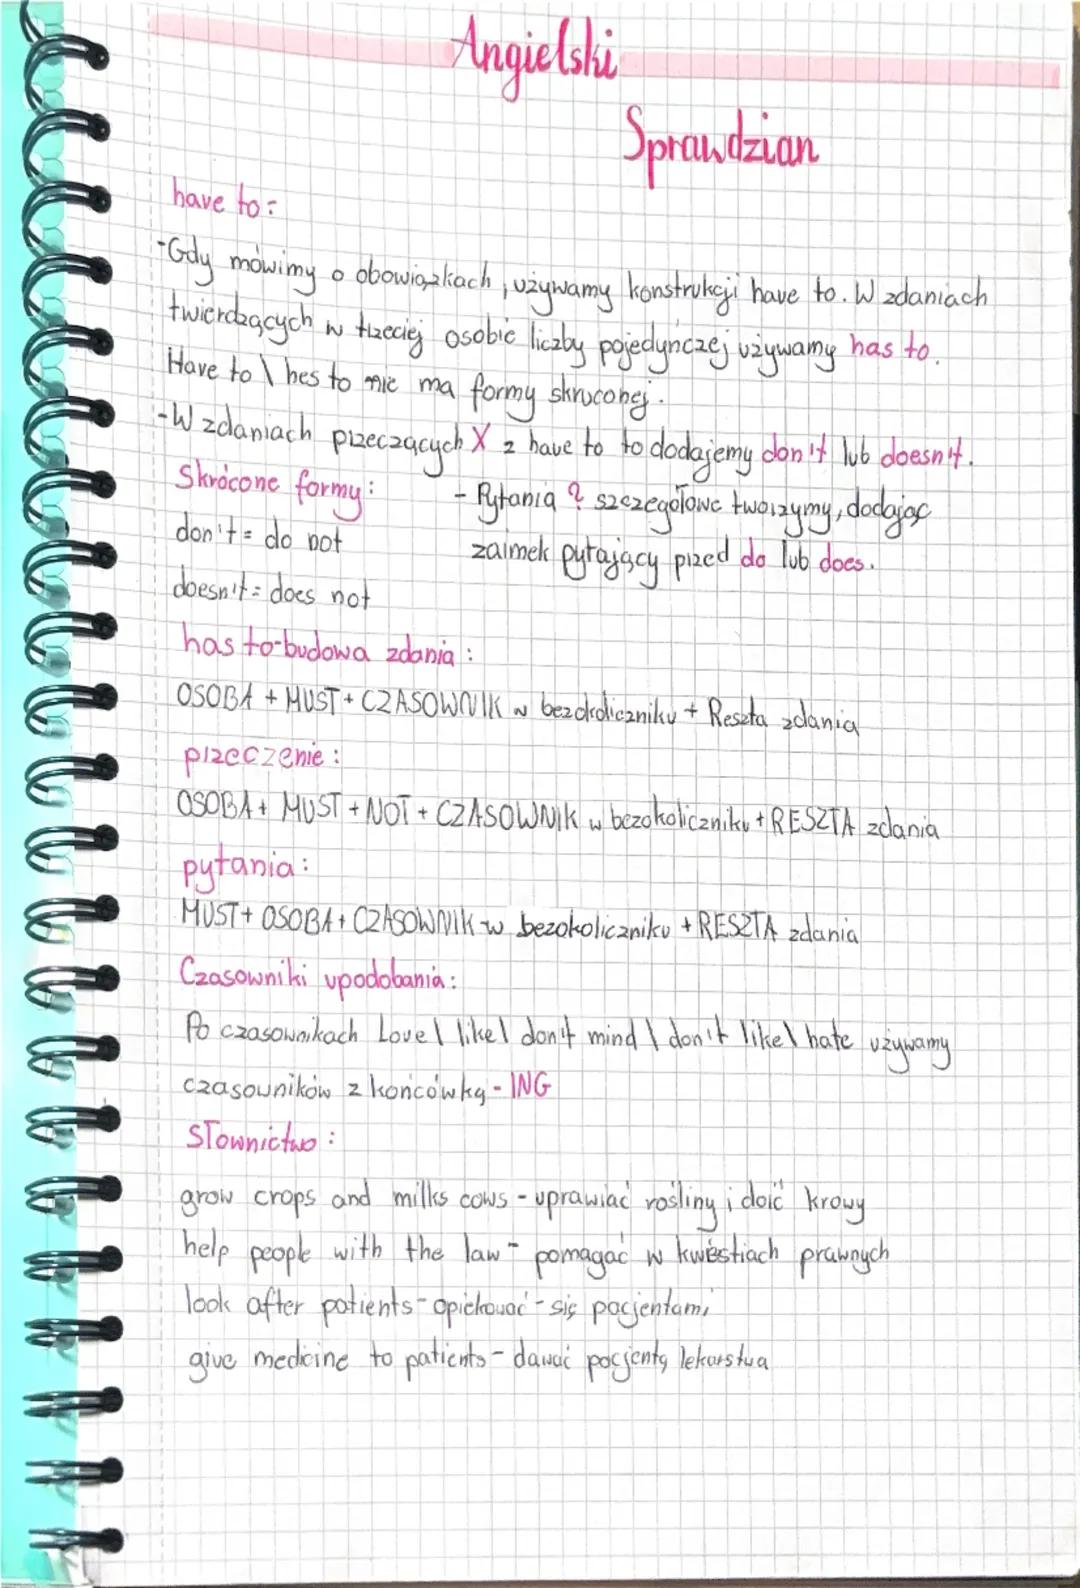 Angielski
Sprawdzian
have to:
-Gdy mówimy o obowiązkach, używamy konstrukcji have to. W zdaniach
twierdzących w trzeciej osobie liczby pojedynczej używamy has to.
Have to \ hes to nie ma formy skruconej.
-W zdaniach przeczących X z have to to dodajemy don't lub doesn't.
Skrócone formy:
don't = do not
doesn't = does not
- Pytania ? szczegółowe tworzymy, dodając
zaimek pytający przed do lub does.
has to-budowa zdania:
OSOBA + MUST + CZASOWNIK w bezokoliczniku + Reszta zdania
przeczenie:
OSOBA + MUST + NOT + CZASOWNIK w bezokoliczniku + RESZTA zdania
pytania:
MUST + OSOBA + CZASOWNIK w bezokoliczniku + RESZTA zdania
Czasowniki upodobania:
Po czasownikach Love \ like \ don't mind \ don't like \ hate używamy
czasowników z końcówką - ING
Słownictwo:
grow crops and milks cows - uprawiać rośliny i doić krowy
help people with the law - pomagać w kwestiach prawnych
look after patients - opiekować - się pacjentami
give medicine to patients - dawać pacjentą lekarstwa